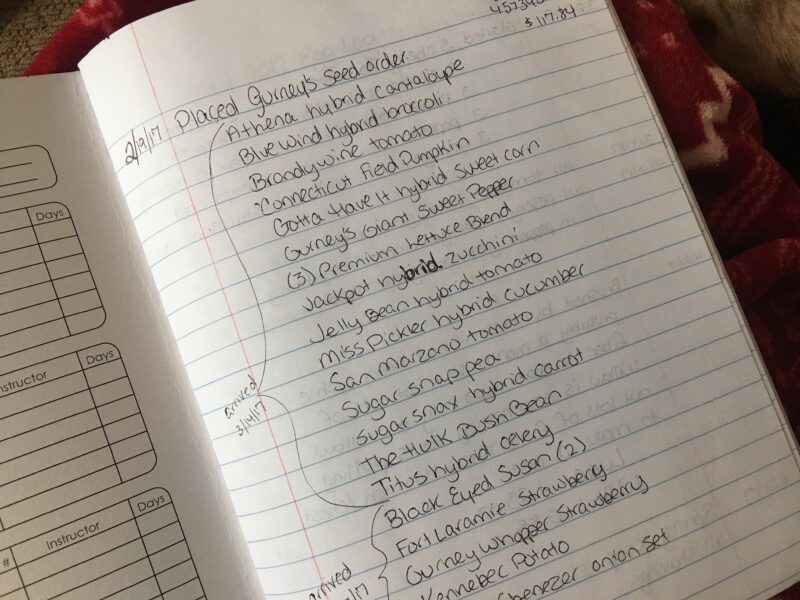 $117.84
2/9/17 Placed Gurney's Seed order
Athena hybrid cantaloupe
Bluewind hybrid broccoli
Brandywine tomato
Connecticut Field Pumpkin
Gotta Have It hybrid Sweet corn
Gurney's Giant Sweet Pepper
(3) Premium Lettuce Blend
Jackpot hybrid zucchini
Jelly Bean hybrid tomato
Miss Pickler hybrid cucumber
San Marzano tomato
Sugar snap pea
Sugar snax hybrid carrot
The Hulk Bush Bean
Titus hybrid celery
arrived
3/14/17
Black Eyed Susan (2)
Fort Laramie Strawberry
Gurney Whopper Strawberry
Kennebec Potato
Ebenezer onion set
arrived
Days
Instructor
Days
# Instructor Days